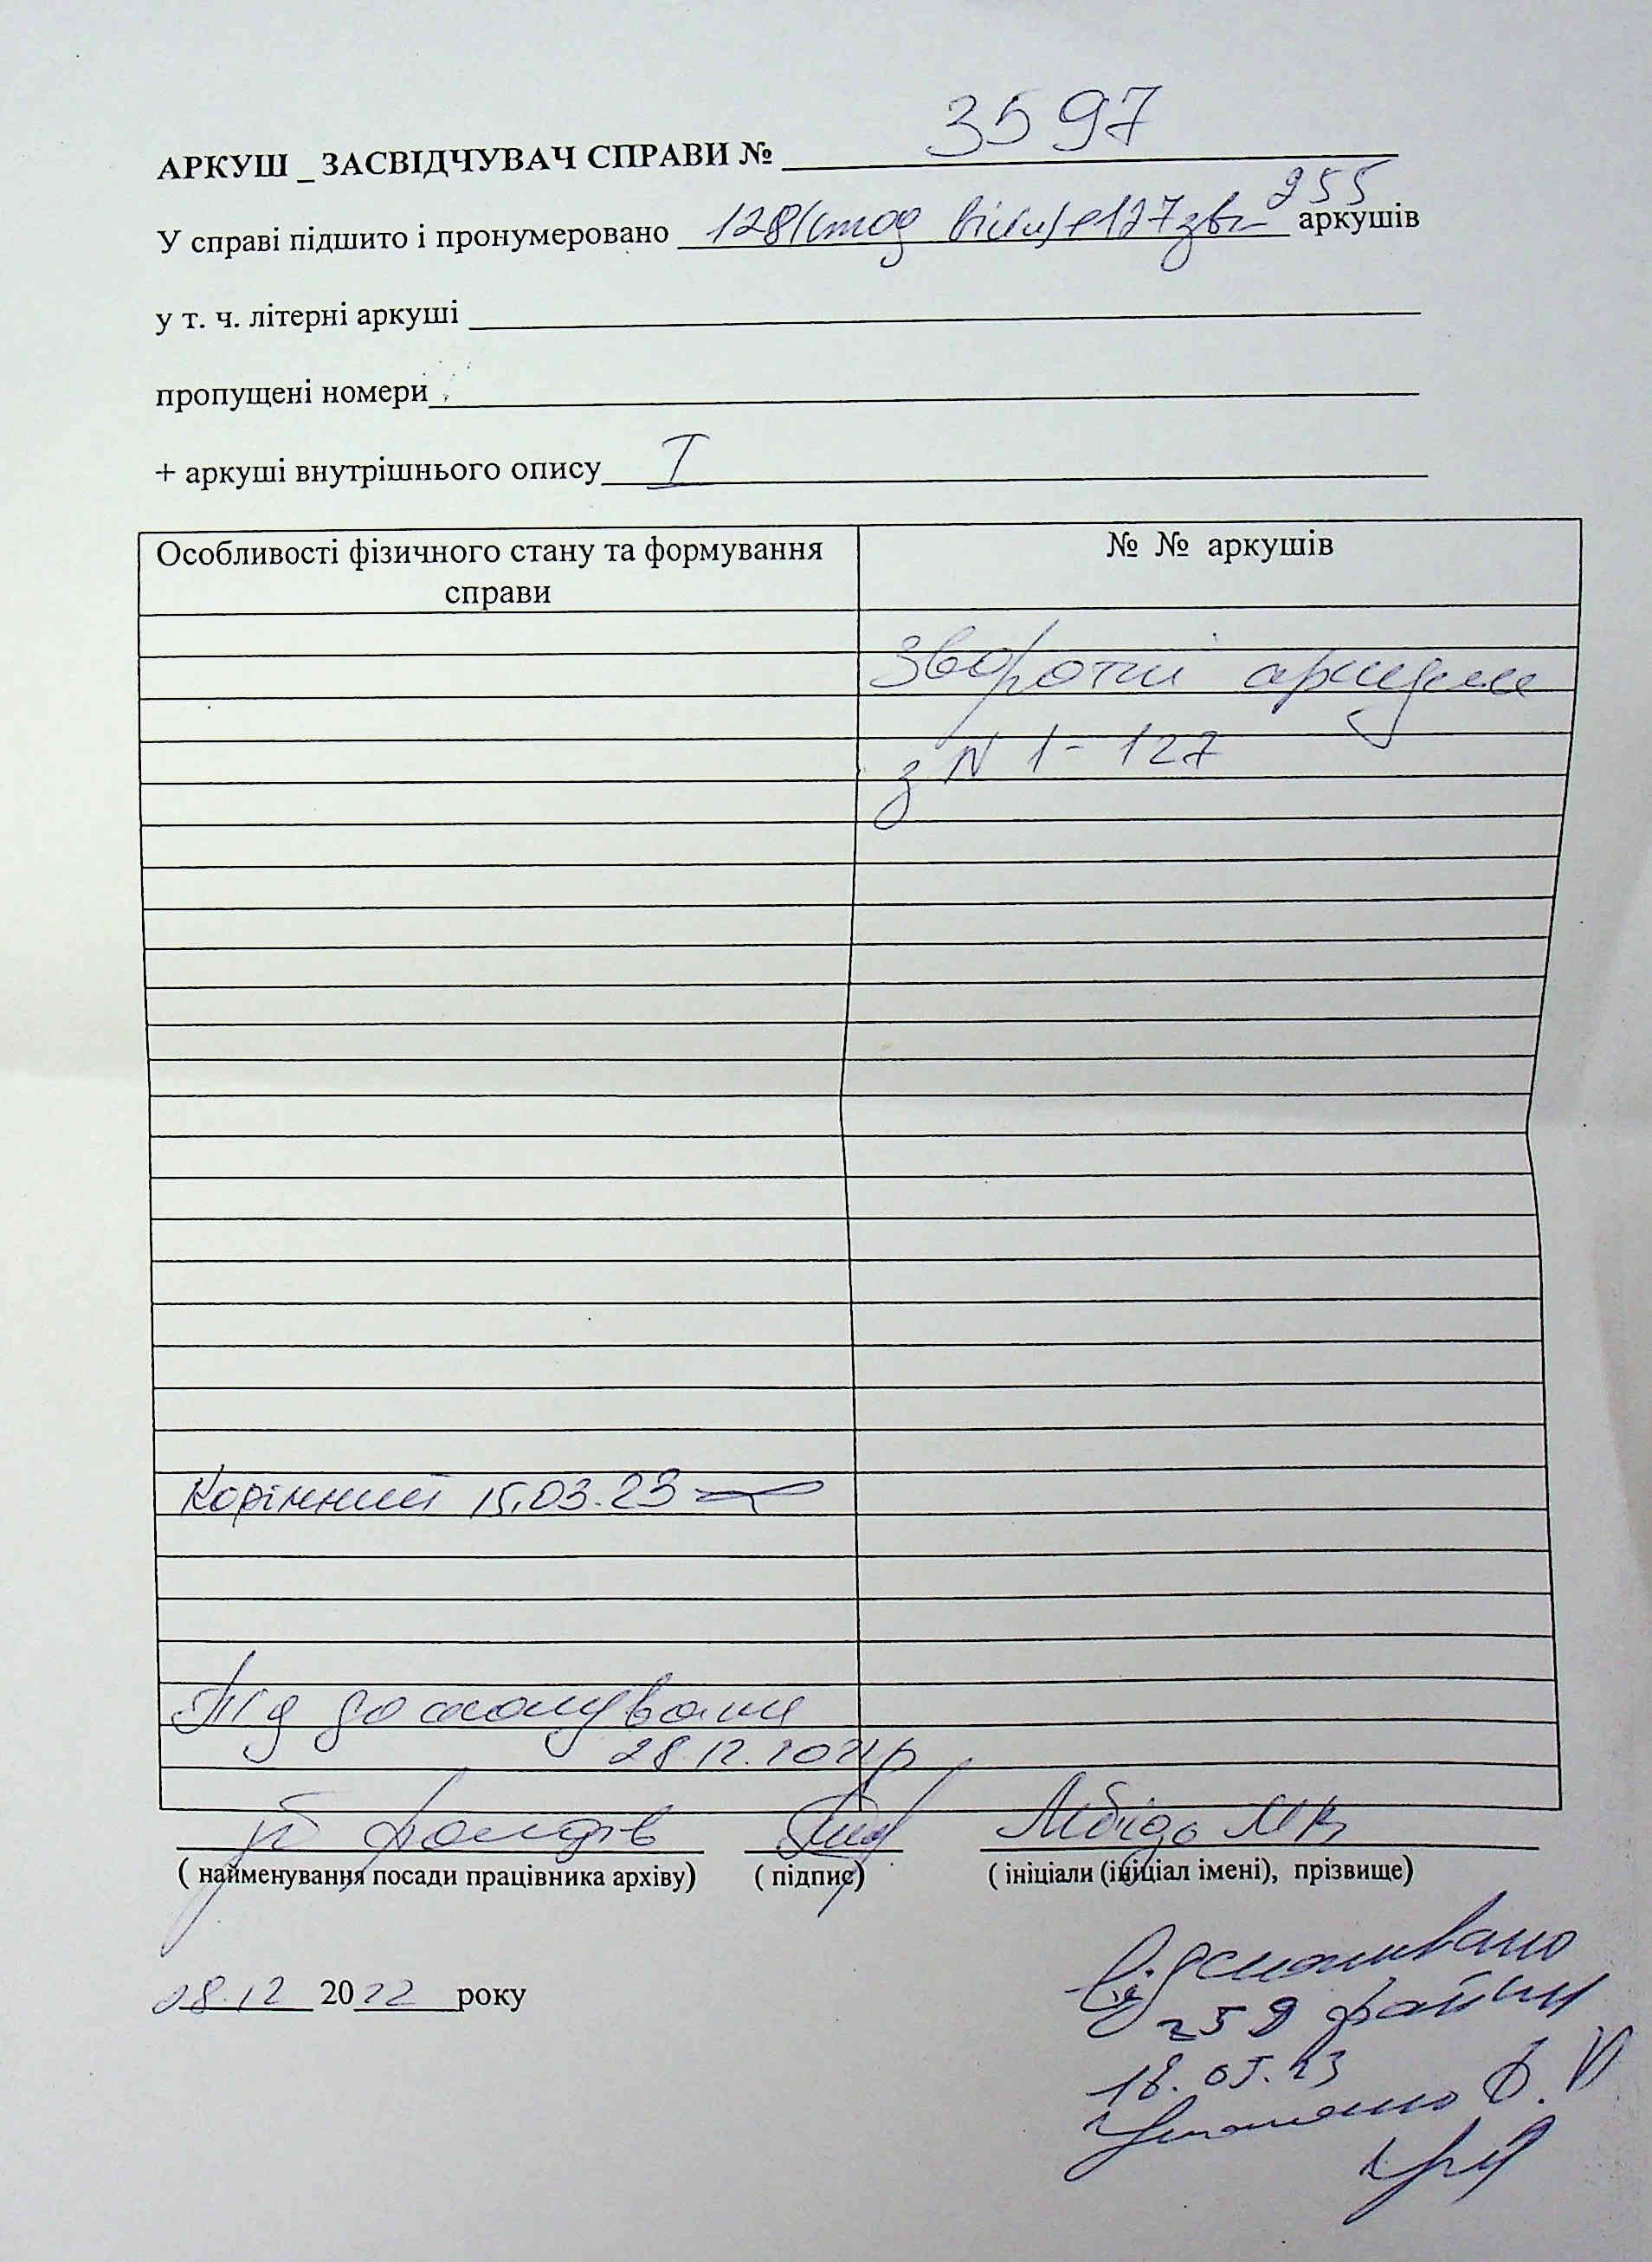 3597
АРКУШ _ ЗАСВІДЧУВАЧ СПРАВИ №
255
У справі підшито і пронумеровано 128 +127зв аркушів
у т. ч. літерні аркуші
пропущені номери
+ аркуші внутрішнього опису I
Особливості фізичного стану та формування справи
№ № аркушів
Зворотні аркуши
з N 1- 127
Корінний 15.03.23
Під до сканування
28.12.2022р
фондів
( найменування посади працівника архіву) ( підпис) ( ініціали (ініціал імені), прізвище)
28.12 2022 року
Відскановано
259 файли
18.05.23